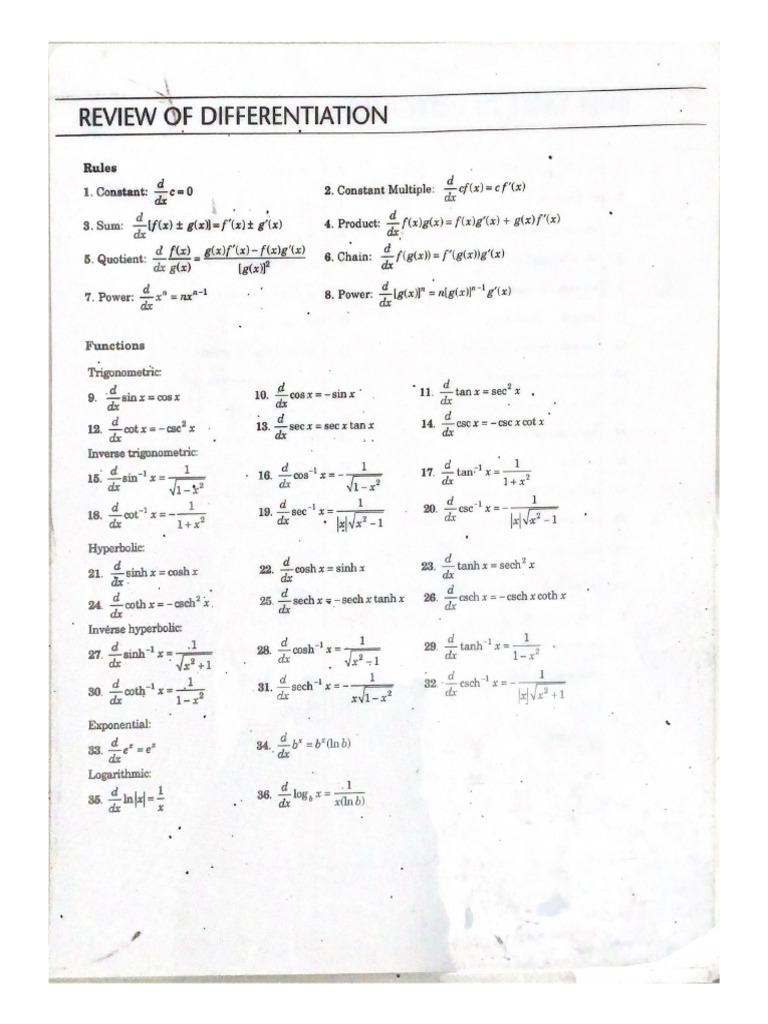 REVIEW OF DIFFERENTIATION
Rules
1. Constant: d/dx c = 0 2. Constant Multiple: d/dx cf(x) = c f′(x)
3. Sum: d/dx [f(x) ± g(x)] = f′(x) ± g′(x) 4. Product: d/dx f(x)g(x) = f(x)g′(x) + g(x)f′(x)
5. Quotient: d/dx f(x)/g(x) = (g(x)f′(x) − f(x)g′(x))/[g(x)]² 6. Chain: d/dx f(g(x)) = f′(g(x))g′(x)
7. Power: d/dx xⁿ = nxⁿ⁻¹ 8. Power: d/dx [g(x)]ⁿ = n[g(x)]ⁿ⁻¹ g′(x)
Functions
Trigonometric:
9. d/dx sin x = cos x 10. d/dx cos x = −sin x 11. d/dx tan x = sec² x
12. d/dx cot x = −csc² x 13. d/dx sec x = sec x tan x 14. d/dx csc x = −csc x cot x
Inverse trigonometric:
15. d/dx sin⁻¹ x = 1/√(1−x²) 16. d/dx cos⁻¹ x = −1/√(1−x²) 17. d/dx tan⁻¹ x = 1/(1+x²)
18. d/dx cot⁻¹ x = −1/(1+x²) 19. d/dx sec⁻¹ x = 1/(|x|√(x²−1)) 20. d/dx csc⁻¹ x = −1/(|x|√(x²−1))
Hyperbolic:
21. d/dx sinh x = cosh x 22. d/dx cosh x = sinh x 23. d/dx tanh x = sech² x
24. d/dx coth x = −csch² x 25. d/dx sech x = −sech x tanh x 26. d/dx csch x = −csch x coth x
Inverse hyperbolic:
27. d/dx sinh⁻¹ x = 1/√(x²+1) 28. d/dx cosh⁻¹ x = 1/√(x²−1) 29. d/dx tanh⁻¹ x = 1/(1−x²)
30. d/dx coth⁻¹ x = 1/(1−x²) 31. d/dx sech⁻¹ x = −1/(x√(1−x²)) 32. d/dx csch⁻¹ x = −1/(|x|√(x²+1))
Exponential:
33. d/dx eˣ = eˣ 34. d/dx bˣ = bˣ(ln b)
Logarithmic:
35. d/dx ln|x| = 1/x 36. d/dx log_b x = 1/(x(ln b))